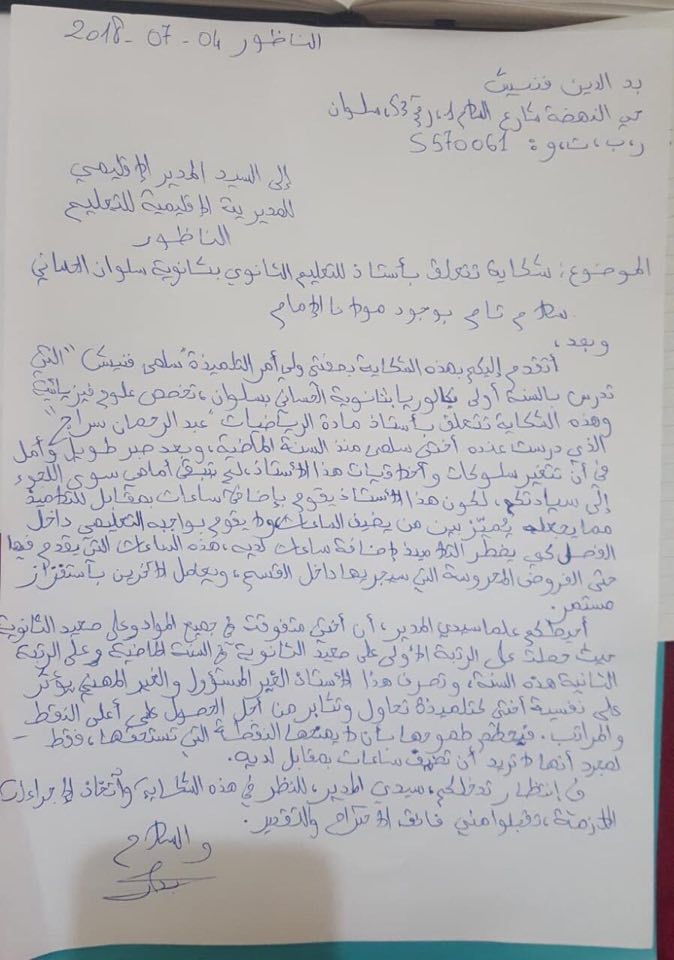 الناظور 04-07-2018
بدر الدين فنيش
حي النهضة شارع السلام 1، رقم 53، سلوان
ر.ب.ت.و: S570061
إلى السيد المدير الإقليمي
للمديرية الإقليمية للتعليم
الناظور
الموضوع: شكاية تتعلق بأستاذ للتعليم الثانوي بثانوية سلوان
سلام تام بوجود مولانا الإمام
وبعد،
أتقدم إليكم بهذه الشكاية بصفتي ولي أمر التلميذة "سلمى فنيش" التي
تدرس بالسنة أولى بكالوريا بثانوية الحساني بسلوان، تخصص علوم فيزيائية
وهذه الشكاية تتعلق بأستاذ مادة الرياضيات "عبد الرحمان سراج"
الذي درست عنده أختي سلمى منذ السنة الماضية، وبعد صبر طويل وأمل
في أن تتغير سلوكات وأخلاقيات هذا الأستاذ، لم تتبقى أمامي سوى اللجوء
إلى سيادتكم، لكون هذا الأستاذ يقوم بإضافة ساعات بمقابل للتلاميذ
مما يجعله يُميّز بين من يضيف الساعات ولا يقوم بواجبه التعليمي داخل
الفصل لكي يضطر التلاميذ لإضافة ساعات لديه، هذه الساعات التي يقدم فيها
حتى الفروض المحروسة التي سيجريها داخل القسم، ويعامل الآخرين بآستفزاز
مستمر.
أحيطكم علما سيدي المدير، أن أختي متفوقة في جميع المواد وعلى صعيد الثانوية
حيث حصلت على الرتبة الأولى على صعيد الثانوية في السنة الماضية وعلى الرتبة
الثانية هذه السنة، وتصرف هذا الأستاذ الغير المسؤول والغير المهني يؤثر
على نفسية أختي كتلميذة تحاول وتثابر من أجل الحصول على أعلى النقط
والمراتب. فيحطم طموحها بأن لا يمنحها النقطة التي تستحقها، فقط -
لمجرد أنها لا تريد أن تضيف ساعات بمقابل لديه.
في إنتظار تدخلكم، سيدي المدير، للنظر في هذه الشكاية وآتخاذ الإجراءات
اللازمة، تقبلوا مني فائق الإحترام والتقدير.
والسلام